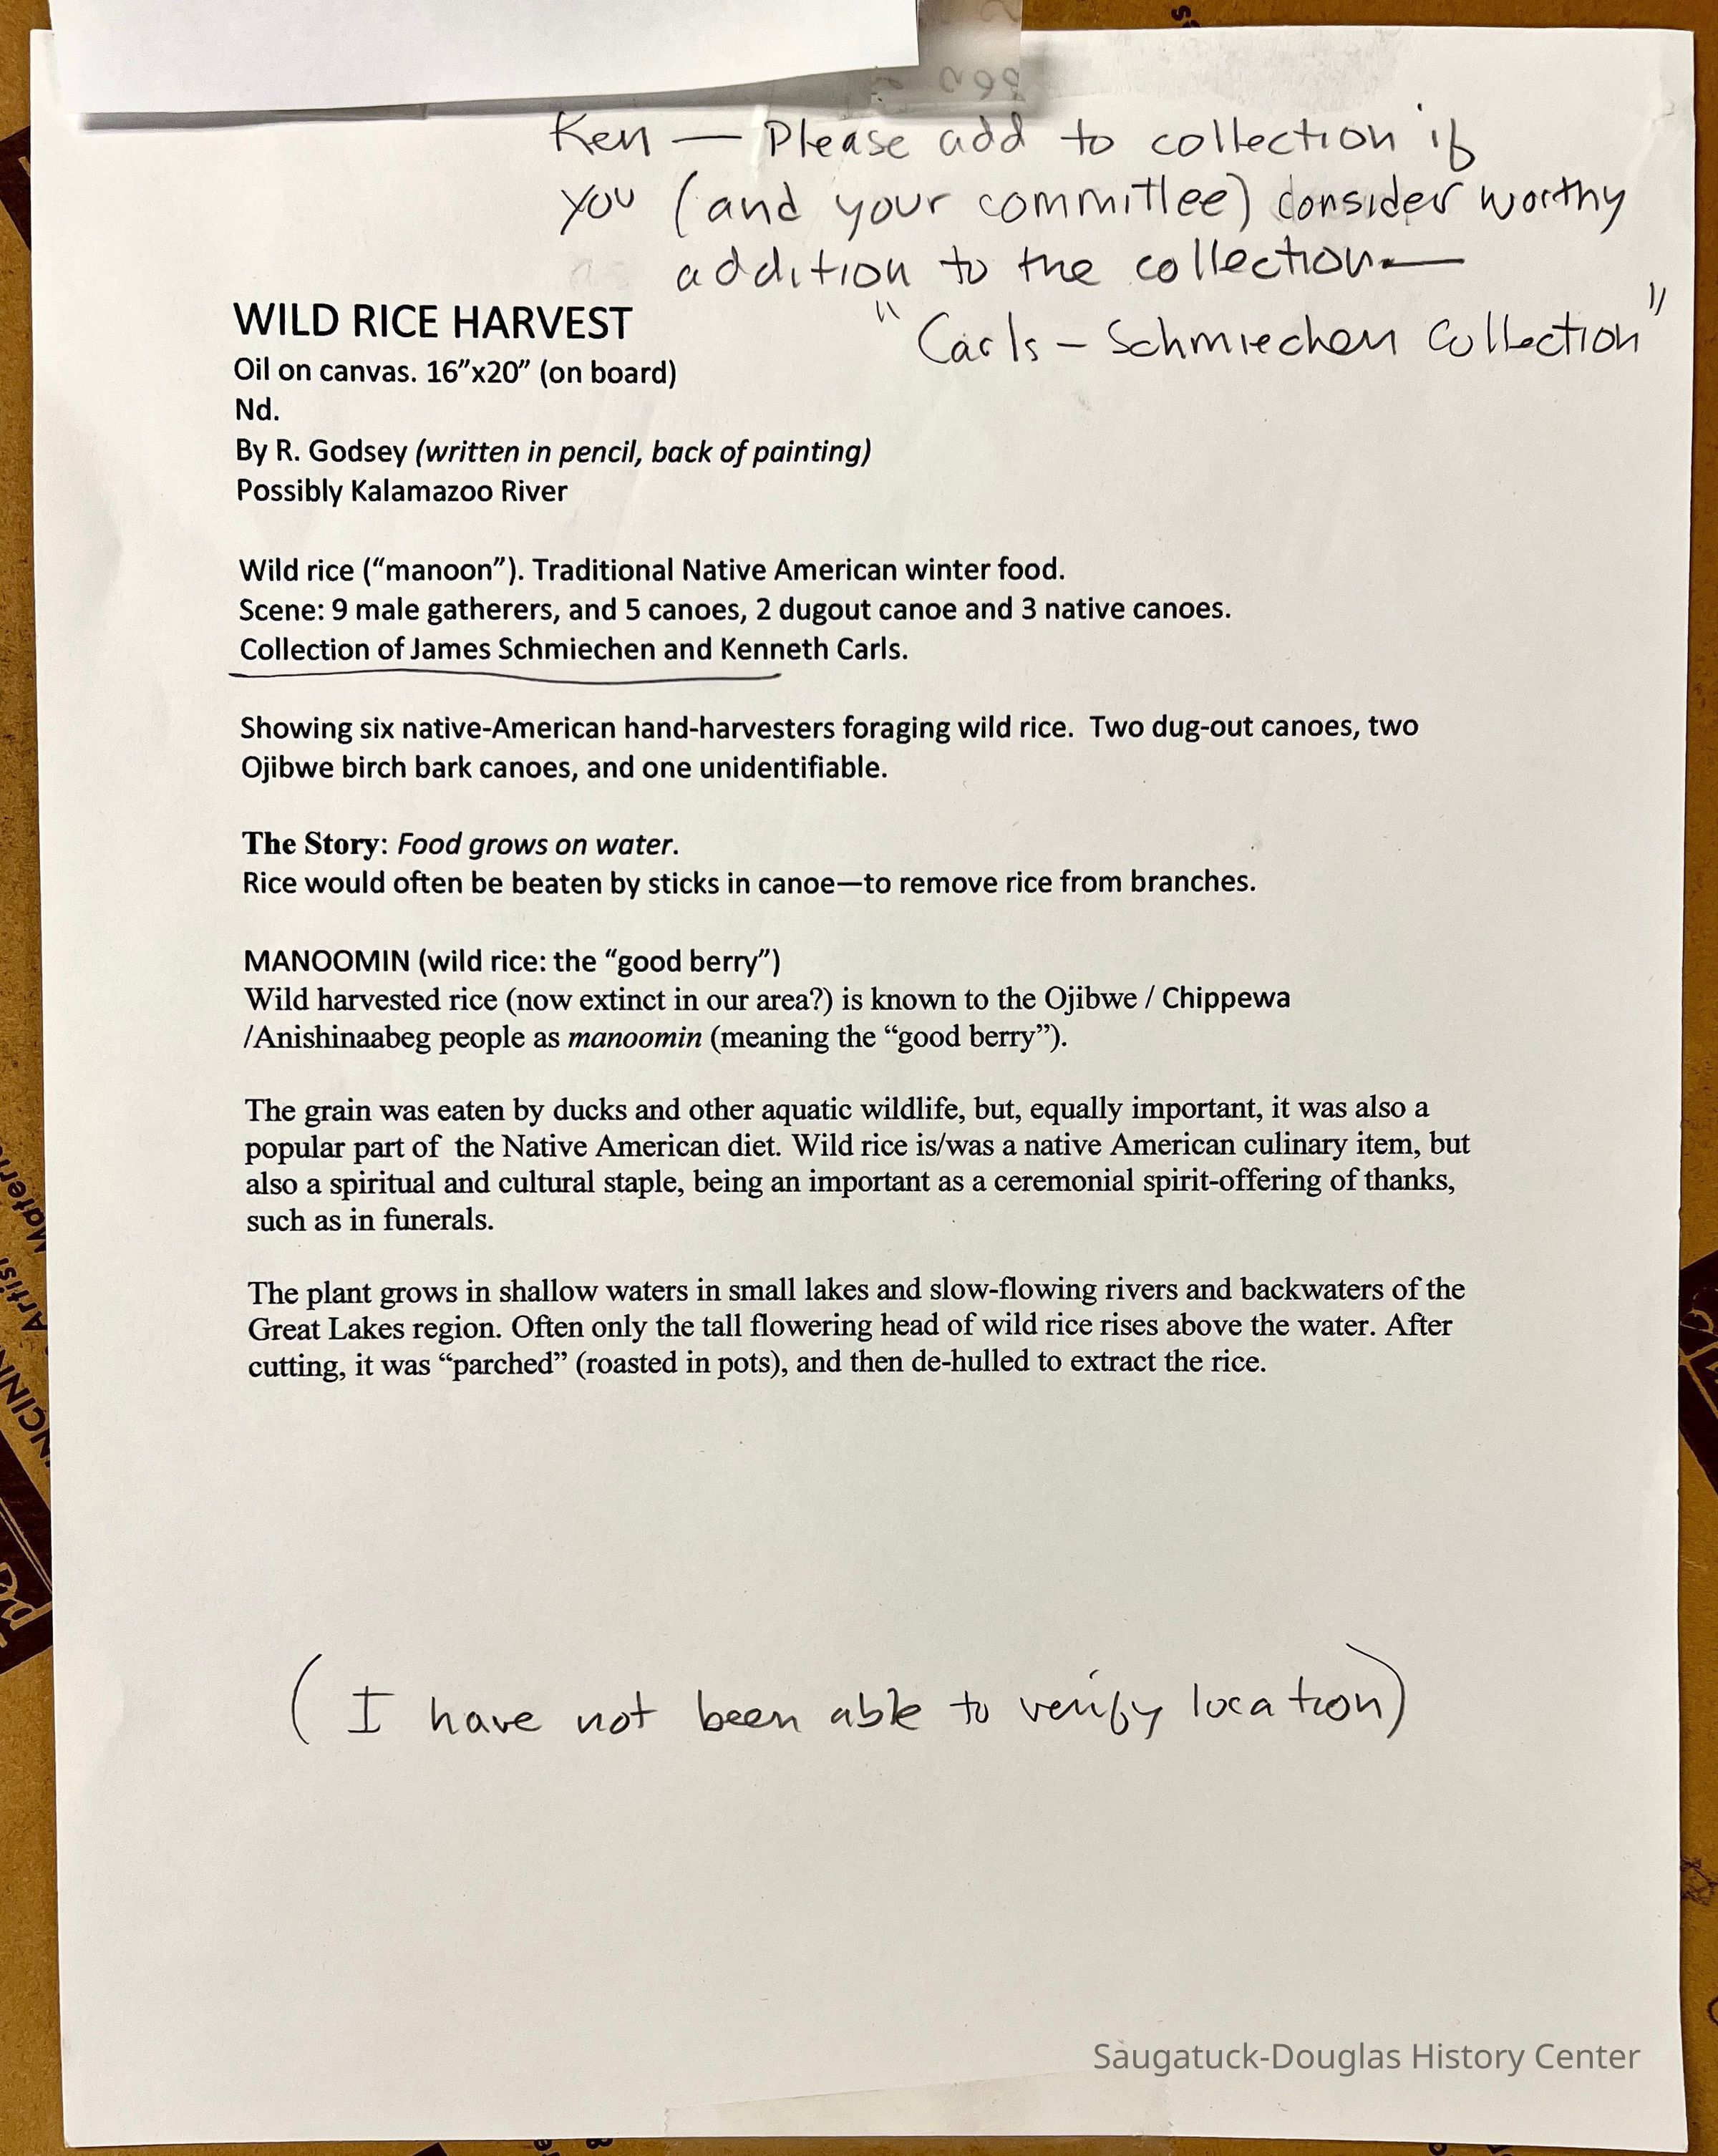 Ken — Please add to collection if
you (and your committee) consider worthy
addition to the collection—
"Carls - Schmiechen Collection"
WILD RICE HARVEST
Oil on canvas. 16”x20” (on board)
Nd.
By R. Godsey (written in pencil, back of painting)
Possibly Kalamazoo River
Wild rice (“manoon”). Traditional Native American winter food.
Scene: 9 male gatherers, and 5 canoes, 2 dugout canoe and 3 native canoes.
Collection of James Schmiechen and Kenneth Carls.
Showing six native-American hand-harvesters foraging wild rice.  Two dug-out canoes, two
Ojibwe birch bark canoes, and one unidentifiable.
The Story: Food grows on water.
Rice would often be beaten by sticks in canoe—to remove rice from branches.
MANOOMIN (wild rice: the “good berry”)
Wild harvested rice (now extinct in our area?) is known to the Ojibwe / Chippewa
/Anishinaabeg people as manoomin (meaning the “good berry”).
The grain was eaten by ducks and other aquatic wildlife, but, equally important, it was also a
popular part of  the Native American diet. Wild rice is/was a native American culinary item, but
also a spiritual and cultural staple, being an important as a ceremonial spirit-offering of thanks,
such as in funerals.
The plant grows in shallow waters in small lakes and slow-flowing rivers and backwaters of the
Great Lakes region. Often only the tall flowering head of wild rice rises above the water. After
cutting, it was “parched” (roasted in pots), and then de-hulled to extract the rice.
(I have not been able to verify location)
Saugatuck-Douglas History Center